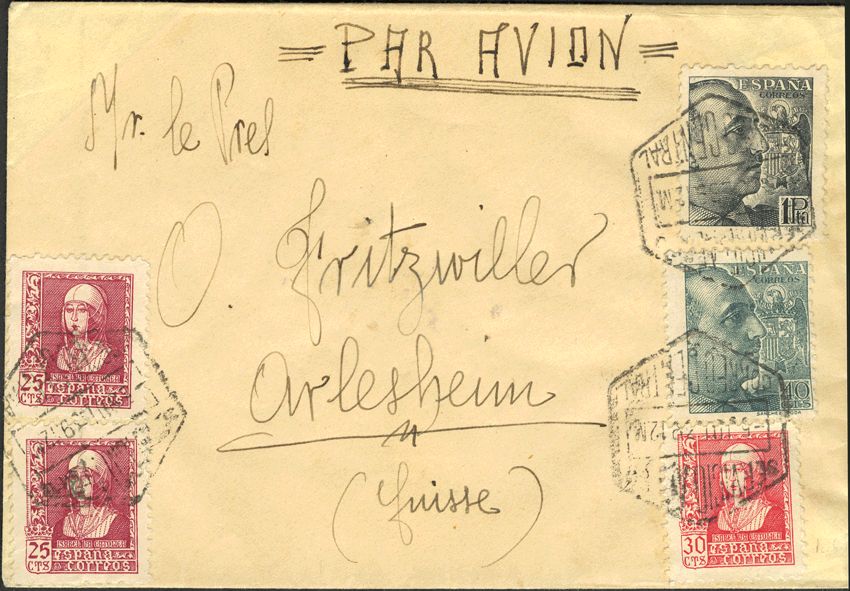 = PAR AVION =
Mr. le Pres
O. Fritzwiller
Arlesheim
(Suisse)
ESPAÑA
CORREOS
1 Pta
CENTRAL
12 M
ESPAÑA
CORREOS
40
CTS
12 M
30
CTS
ISABEL LA CATOLICA
ESPAÑA
CORREOS
25
CTS
ISABEL LA CATOLICA
ESPAÑA
CORREOS
25
CTS
ISABEL LA CATOLICA
ESPAÑA
CORREOS